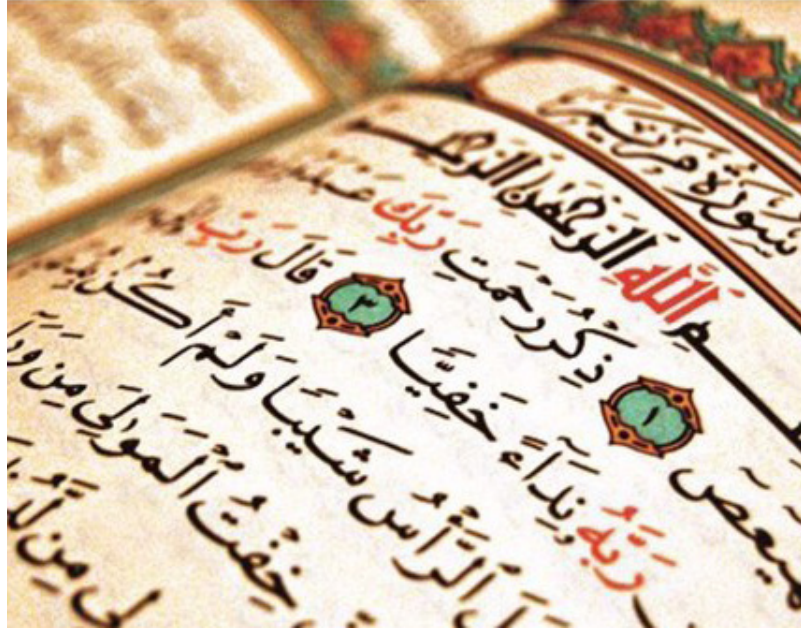 سورة مريم
ـمِ اللَّهِ الرَّحْمَٰنِ الرَّحِيـ
ـهيعص ١ ذِكْرُ رَحْمَتِ رَبِّكَ عَبْدَهُ
رَبَّهُ نِدَآءً خَفِيًّا ٣ قَالَ رَبِّ إِنِّي
الرَّأْسُ شَيْبًا وَلَمْ أَكُنْ
خِفْتُ الْمَوَٰلِيَ مِن وَرَآ
لِي مِن لَّدُنْـ